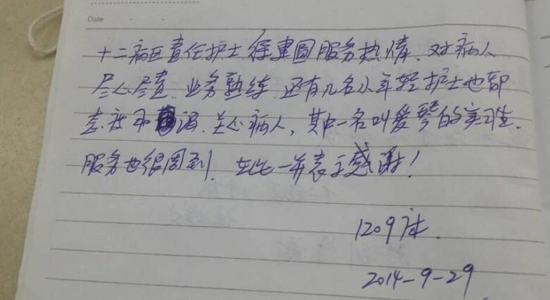 Date
十二病区责任护士徐惠园服务热情、对病人
尽心尽责、业务熟练、还有几名小年轻护士也都
关心病人，其中一名叫爱琴的实习生，
服务也很周到，在此一并表示感谢！
1209床
2014-9-29